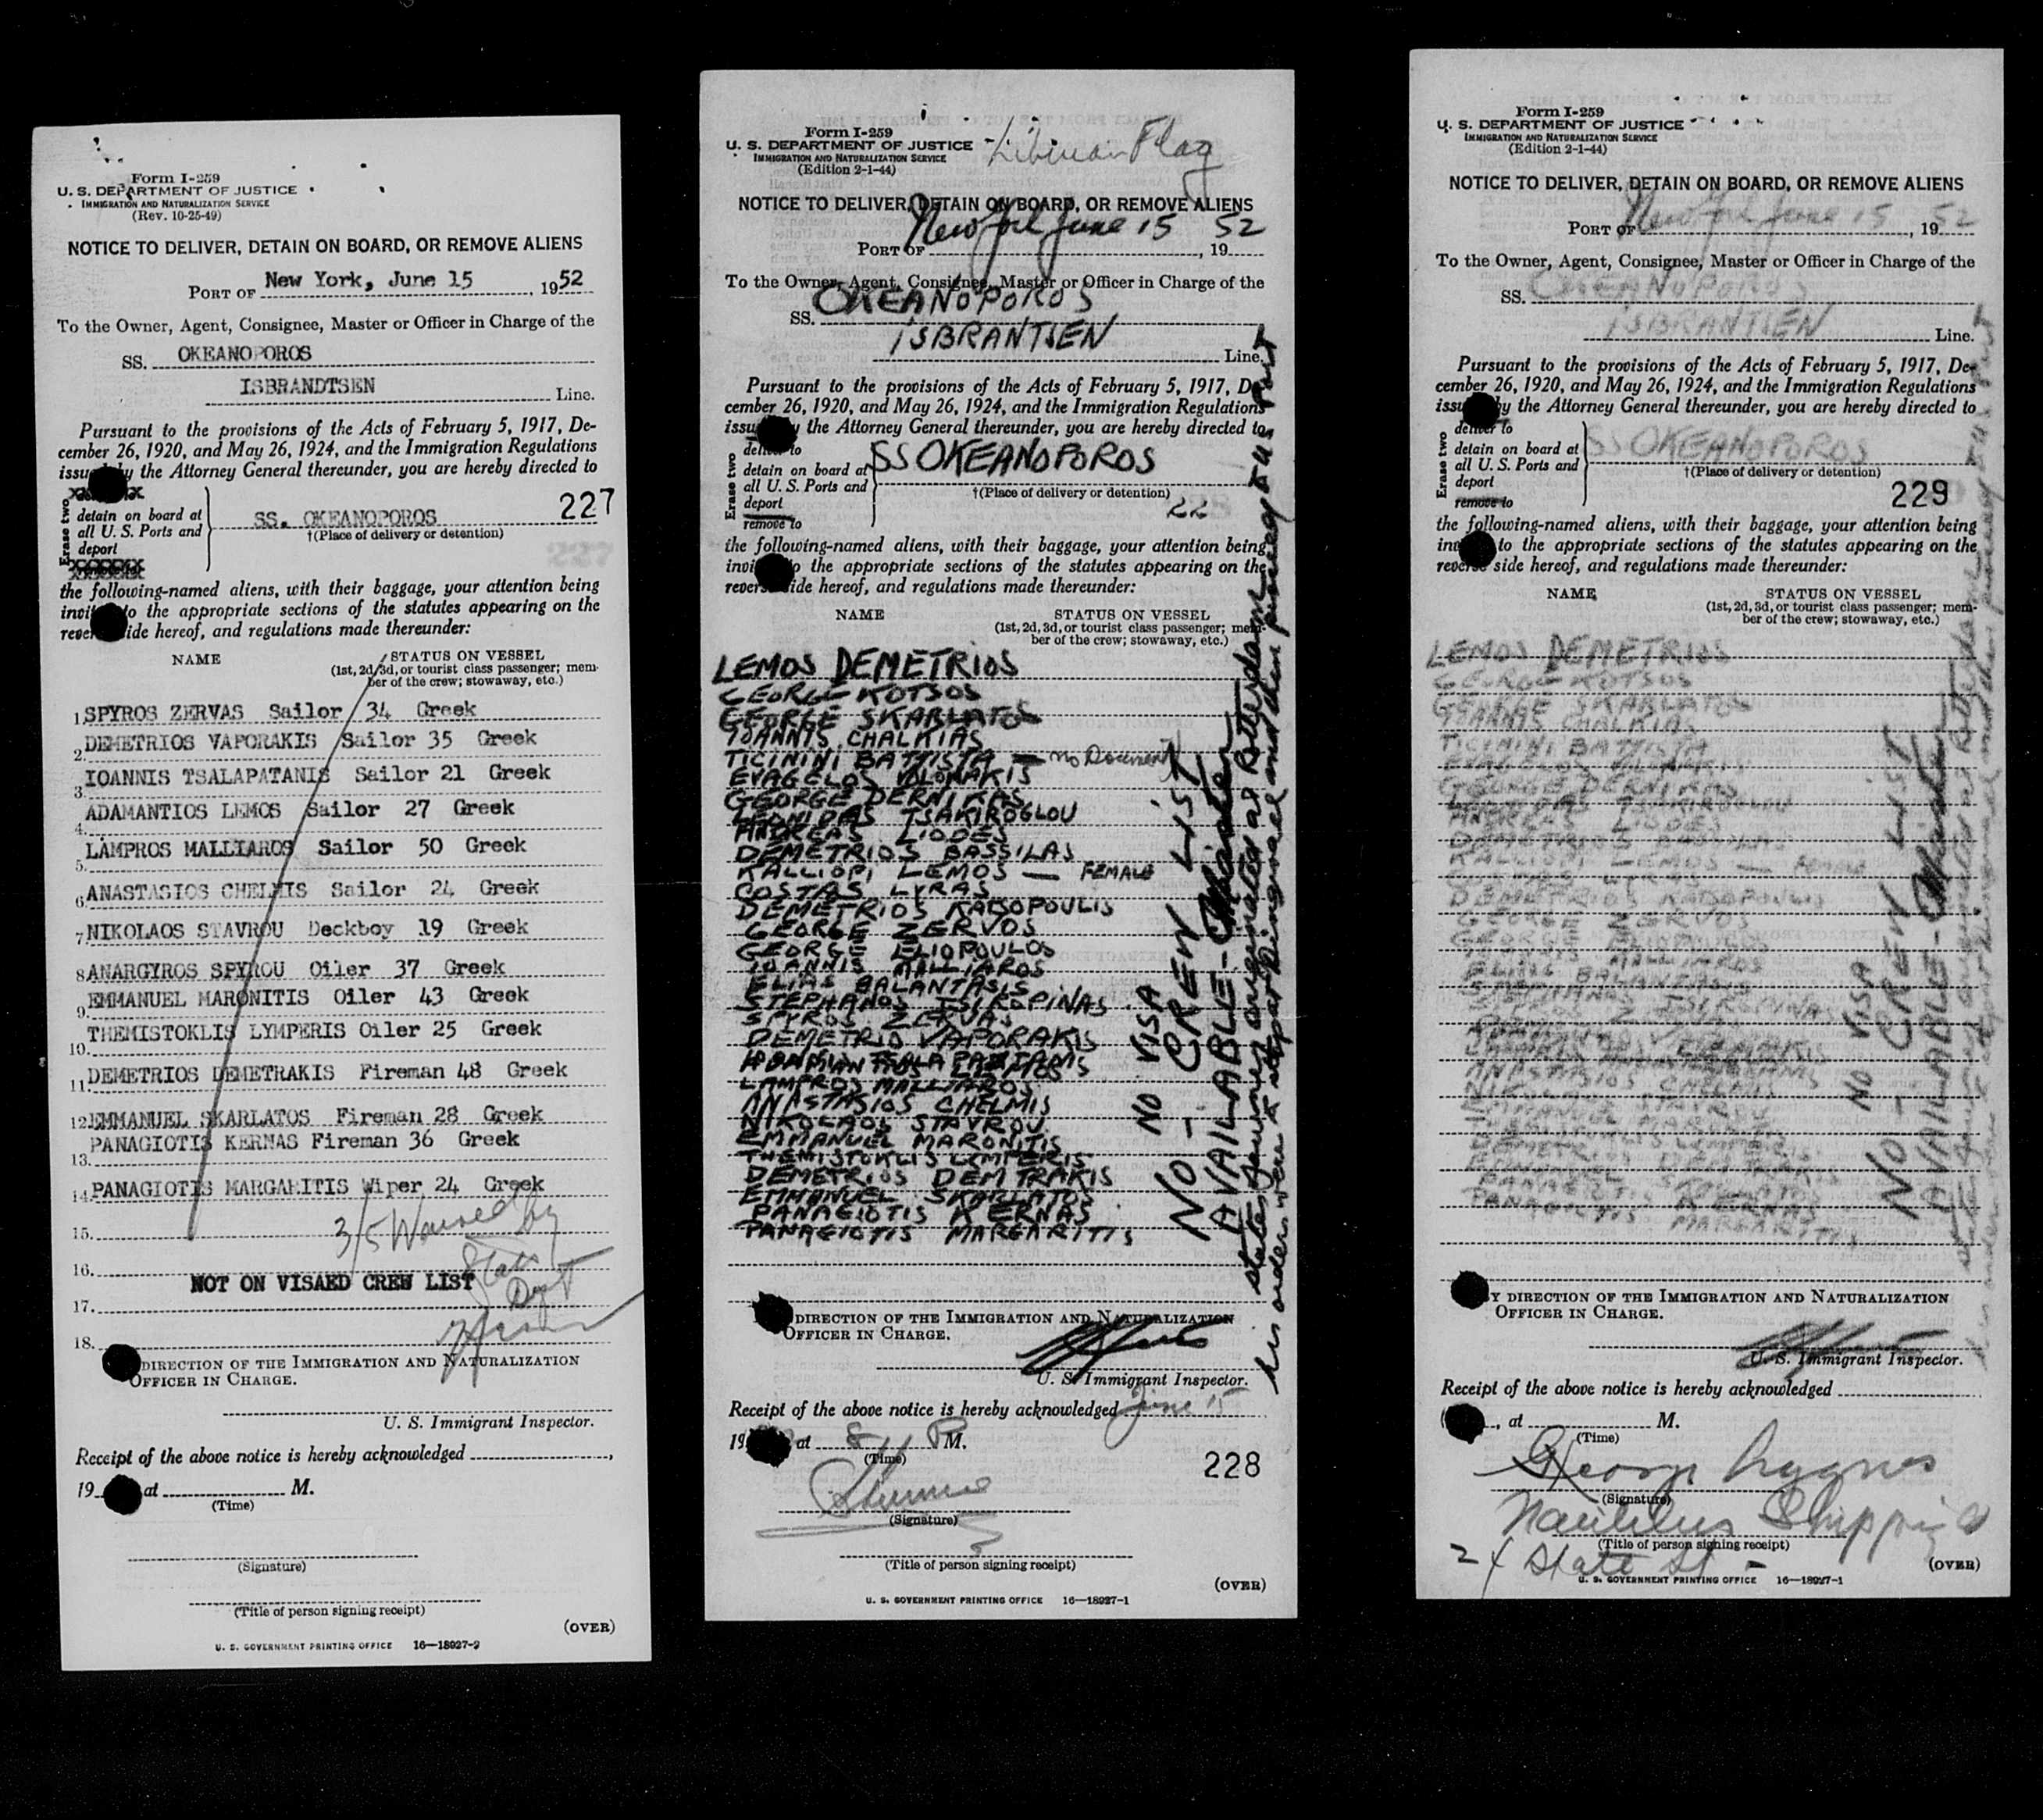 Form I-259
U. S. DEPARTMENT OF JUSTICE
IMMIGRATION AND NATURALIZATION SERVICE
(Rev. 10-25-49)
NOTICE TO DELIVER, DETAIN ON BOARD, OR REMOVE ALIENS
PORT OF New York, June 15, 1952
To the Owner, Agent, Consignee, Master or Officer in Charge of the
SS. OKEANOPOROS
ISBRANDTSEN Line.
Pursuant to the provisions of the Acts of February 5, 1917, De-
cember 26, 1920, and May 26, 1924, and the Immigration Regulations
issued by the Attorney General thereunder, you are hereby directed to
Erase two
detain on board at
all U. S. Ports and
deport
SS. OKEANOPOROS
†(Place of delivery or detention)
227
227
the following-named aliens, with their baggage, your attention being
invited to the appropriate sections of the statutes appearing on the
reverse side hereof, and regulations made thereunder:
NAME STATUS ON VESSEL
(1st, 2d, 3d, or tourist class passenger; mem-
ber of the crew; stowaway, etc.)
1. SPYROS ZERVAS Sailor 34 Greek
2. DEMETRIOS VAPORAKIS Sailor 35 Greek
3. IOANNIS TSALAPATANIS Sailor 21 Greek
4. ADAMANTIOS LEMOS Sailor 27 Greek
5. LAMPROS MALLIAROS Sailor 50 Greek
6. ANASTASIOS CHELMIS Sailor 24 Greek
7. NIKOLAOS STAVROU Deckboy 19 Greek
8. ANARGYROS SPYROU Oiler 37 Greek
9. EMMANUEL MARONITIS Oiler 43 Greek
10. THEMISTOKLIS LYMPERIS Oiler 25 Greek
11. DEMETRIOS DEMETRAKIS Fireman 48 Greek
12. EMMANUEL SKARLATOS Fireman 28 Greek
13. PANAGIOTIS KERNAS Fireman 36 Greek
14. PANAGIOTIS MARGARITIS Wiper 24 Greek
15.
3/5 Waived by
State
Dept
16.
NOT ON VISAED CREW LIST
17.
18.
DIRECTION OF THE IMMIGRATION AND NATURALIZATION
OFFICER IN CHARGE.
U. S. Immigrant Inspector.
Receipt of the above notice is hereby acknowledged
19 at M.
(Time)
(Signature)
(Title of person signing receipt)
(OVER)
U. S. GOVERNMENT PRINTING OFFICE 16—18927-2
Form I-259
U. S. DEPARTMENT OF JUSTICE
IMMIGRATION AND NATURALIZATION SERVICE
(Edition 2-1-44)
Liberian Flag
NOTICE TO DELIVER, DETAIN ON BOARD, OR REMOVE ALIENS
PORT OF New York June 15, 1952
To the Owner, Agent, Consignee, Master or Officer in Charge of the
SS. OKEANOPOROS
ISBRANTSEN Line.
Pursuant to the provisions of the Acts of February 5, 1917, De-
cember 26, 1920, and May 26, 1924, and the Immigration Regulations
issued by the Attorney General thereunder, you are hereby directed to
Erase two
deliver to
detain on board at
all U. S. Ports and
deport
remove to
SS OKEANOPOROS
†(Place of delivery or detention)
22
the following-named aliens, with their baggage, your attention being
invited to the appropriate sections of the statutes appearing on the
reverse side hereof, and regulations made thereunder:
NAME STATUS ON VESSEL
(1st, 2d, 3d, or tourist class passenger; mem-
ber of the crew; stowaway, etc.)
LEMOS DEMETRIOS
GEORGE KOTSOS
GEORGE SKARLATOS
IOANNIS CHALKIAS
TICININI BATTISTA — no Document
EVAGELOS VOLONAKIS
GEORGE DERNIKAS
LEONIDAS TSAKIROGLOU
ANDREAS LIODES
DEMETRIOS BASSILAS
KALLIOPI LEMOS — FEMALE
COSTAS LYRAS
DEMETRIOS KATSOPOULIS
GEORGE ZERVOS
GEORGE ELIOPOULOS
IOANNIS MALLIAROS
ELIAS BALANTASIS
STEPHANOS TSIROPINAS
SPYROS ZERVAS
DEMETRIO VAPORAKIS
LAMPROS MALLIAROS
ANASTASIOS CHELMIS
NIKOLAOS STAVROU
EMMANUEL MARONITIS
THEMISTOKLIS LIMPERIS
DEMETRIOS DEMTRAKIS
EMMANUEL SKARLATOS
PANAGIOTIS KERNAS
PANAGIOTIS MARGARITIS
NO VISA
NO - CREW LIST
AVAILABLE - Master
DIRECTION OF THE IMMIGRATION AND NATURALIZATION
OFFICER IN CHARGE.
U. S. Immigrant Inspector.
Receipt of the above notice is hereby acknowledged June 15
19 at 8 P M.
(Time)
228
(Signature)
(Title of person signing receipt)
(OVER)
U. S. GOVERNMENT PRINTING OFFICE 16—18927-1
Form I-259
U. S. DEPARTMENT OF JUSTICE
IMMIGRATION AND NATURALIZATION SERVICE
(Edition 2-1-44)
NOTICE TO DELIVER, DETAIN ON BOARD, OR REMOVE ALIENS
PORT OF New York June 15, 1952
To the Owner, Agent, Consignee, Master or Officer in Charge of the
SS. OKEANOPOROS
ISBRANTSEN Line.
Pursuant to the provisions of the Acts of February 5, 1917, De-
cember 26, 1920, and May 26, 1924, and the Immigration Regulations
issued by the Attorney General thereunder, you are hereby directed to
Erase two
deliver to
detain on board at
all U. S. Ports and
deport
remove to
SS OKEANOPOROS
†(Place of delivery or detention)
229
the following-named aliens, with their baggage, your attention being
invited to the appropriate sections of the statutes appearing on the
reverse side hereof, and regulations made thereunder:
NAME STATUS ON VESSEL
(1st, 2d, 3d, or tourist class passenger; mem-
ber of the crew; stowaway, etc.)
LEMOS DEMETRIOS
GEORGE KOTSOS
GEORGE SKARLATOS
IOANNIS CHALKIAS
TICININI BATTISTA
GEORGE DERNIKAS
TSAKIROGLOU
ANDREAS LIODES
KALLIOPI LEMOS — FEMALE
GEORGE ZERVOS
ELIAS BALANTASIS
ANASTASIOS CHELMIS
NIKOLAOS STAVROU
PANAGIOTIS KERNAS
PANAGIOTIS MARGARITIS
NO VISA
NO - CREW LIST
AVAILABLE - Master
BY DIRECTION OF THE IMMIGRATION AND NATURALIZATION
OFFICER IN CHARGE.
U. S. Immigrant Inspector.
Receipt of the above notice is hereby acknowledged
, at M.
(Time)
George
(Signature)
Nautilus Shipping
(Title of person signing receipt)
24 State St -
(OVER)
U. S. GOVERNMENT PRINTING OFFICE 16—18927-1